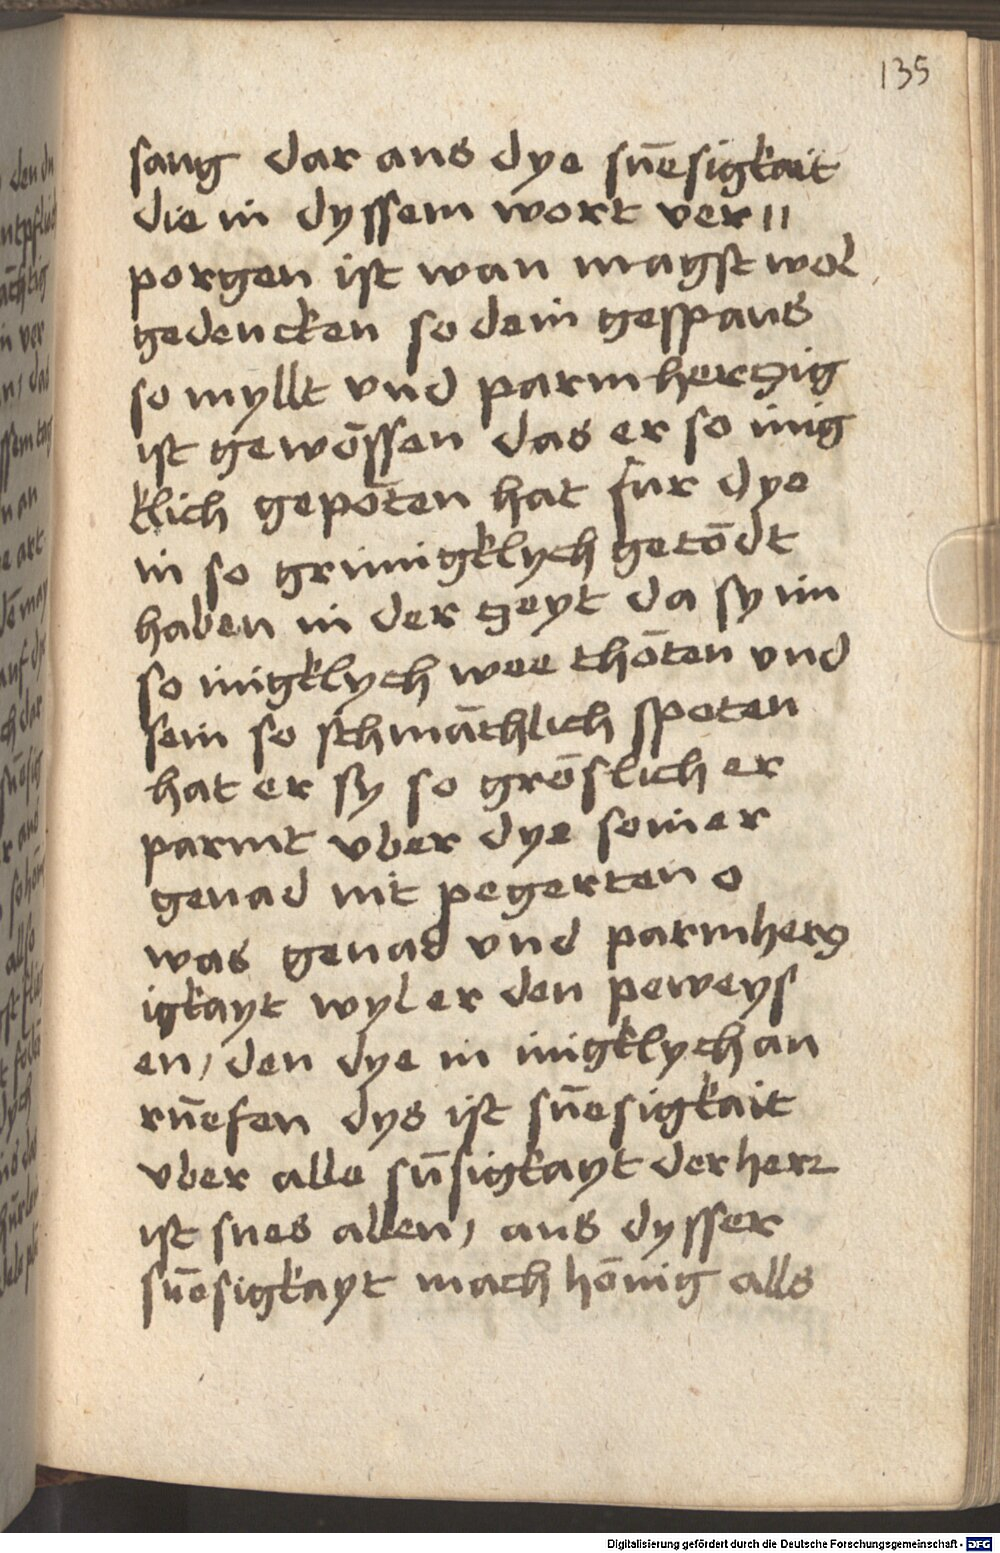 135
saug dar aus dye sūesigkait
die in dyssem wort ver||
porgen ist wan magst wol
gedencken so dein gesppaus
so myllt vnd parmhertzig
ist gewōssen das er so inig
klich gepōten hat fur dye
in so grimigklych getōdt
haben in der tzeyt da sy im
so inigklych wee thōten vnd
sein so schmāchlich spoten
hat er sy so grōslich er
parmt vber dye seiner
genad nit pegerten o
was genad vnd parmhertz
igkayt wyl er den peweys
en / den dye in inigklych an
rūefen dys ist sūesigkait
vber alle sūsigkayt der herr
ist sues allen / aus dysser
sūesigkayt mach hōnig alls
Digitalisierung gefördert durch die Deutsche Forschungsgemeinschaft - DFG